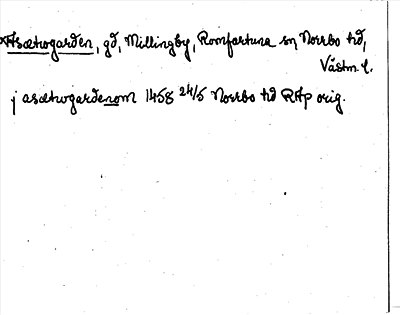 *Asætrogarden, gd, Millingby, Romfartuna sn, Norrbo hd,
Västm. l.
j asætrogardenom 1458 24/5 Norrbo hd RAp orig.